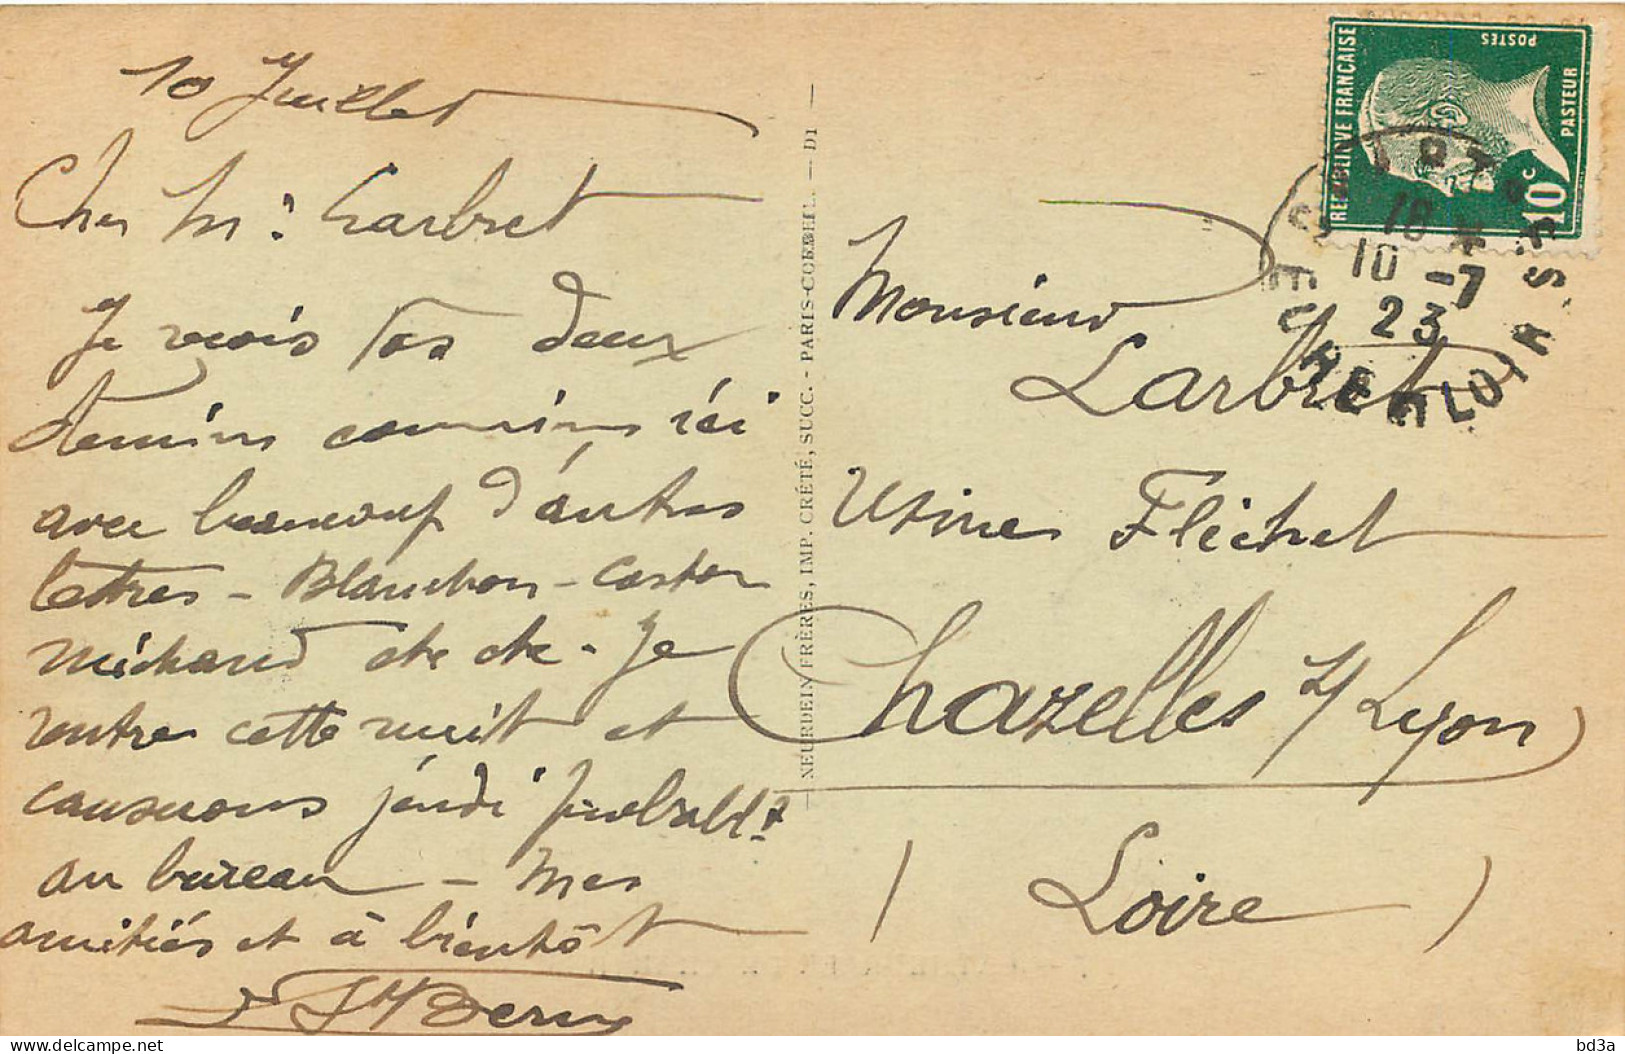 10 Juillet
Cher Mr. Larbret
Je reçois vos deux
derniers courriers ici
avec beaucoup d'autres
lettres - Blanchon - Castor
Michaud etc etc - Je
rentre cette nuit et
causerons jeudi probablt
au bureau - Mes
amitiés et à bientôt
NEURDEIN FRÈRES, IMP. CRÉTÉ, SUCC. - PARIS-CORBEIL.
RÉPUBLIQUE FRANÇAISE
POSTES
PASTEUR
10c
18
10 -7
23
Monsieur
Larbret
Usines Fléchet
Chazelles s/ Lyon
(Loire)
bd3a